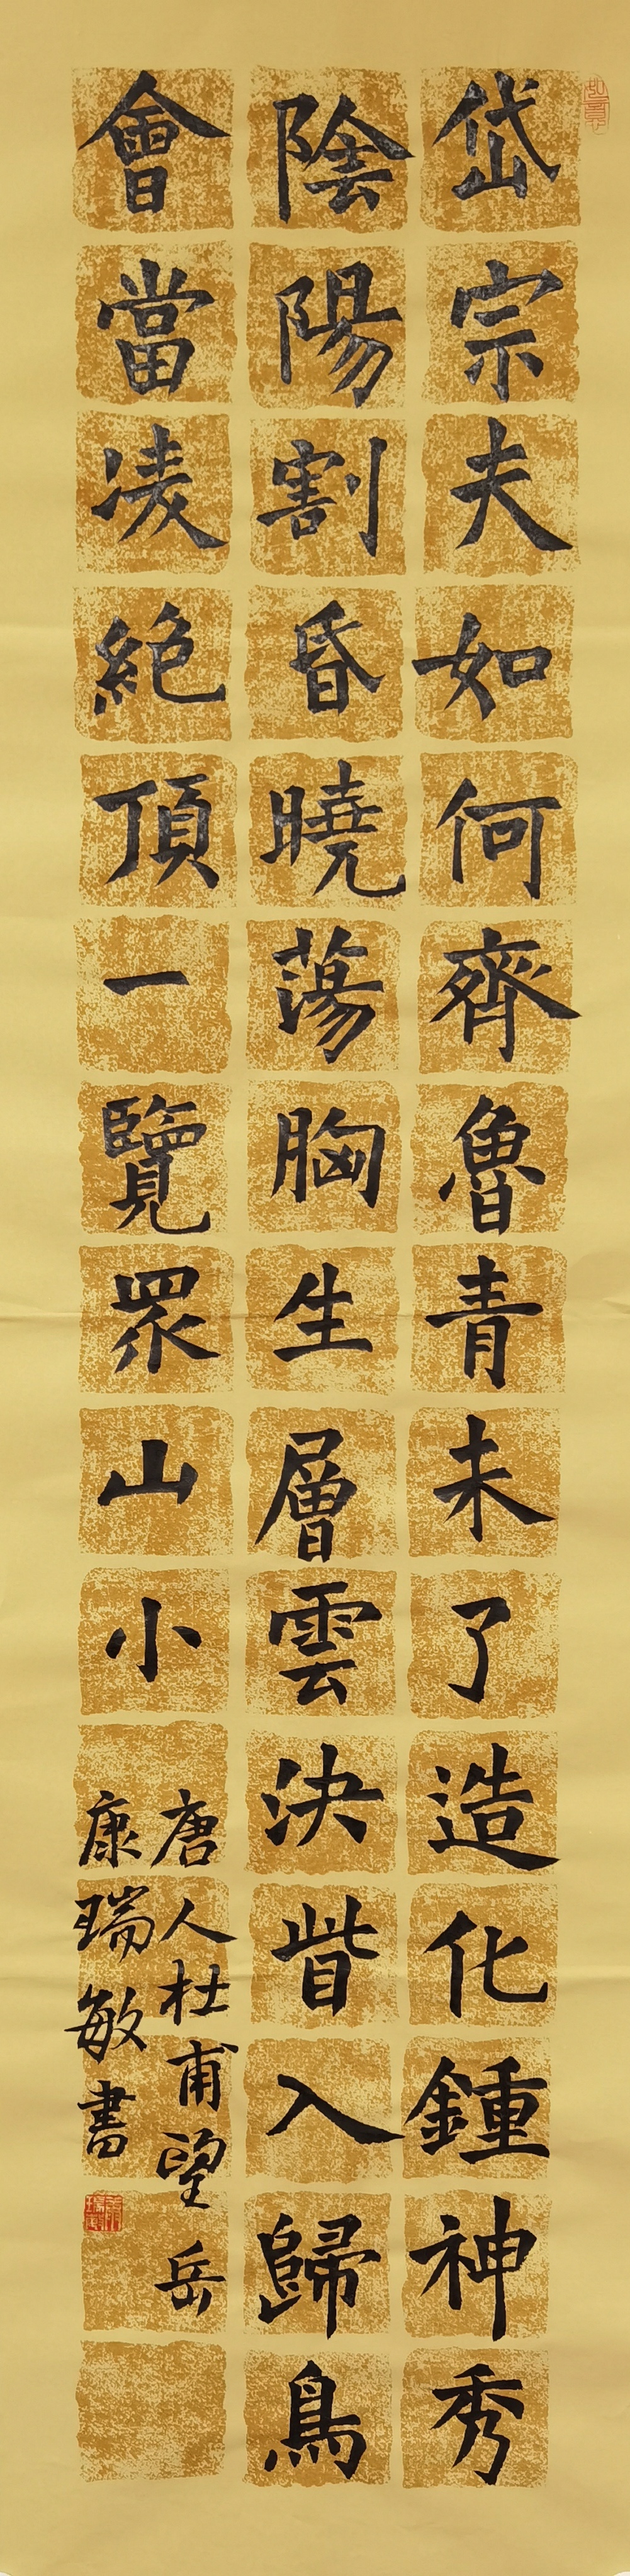 岱宗夫如何齊魯青未了造化鍾神秀
陰陽割昏曉蕩胸生層雲決眥入歸鳥
會當凌絕頂一覽眾山小
唐人杜甫望岳
康瑞敏書